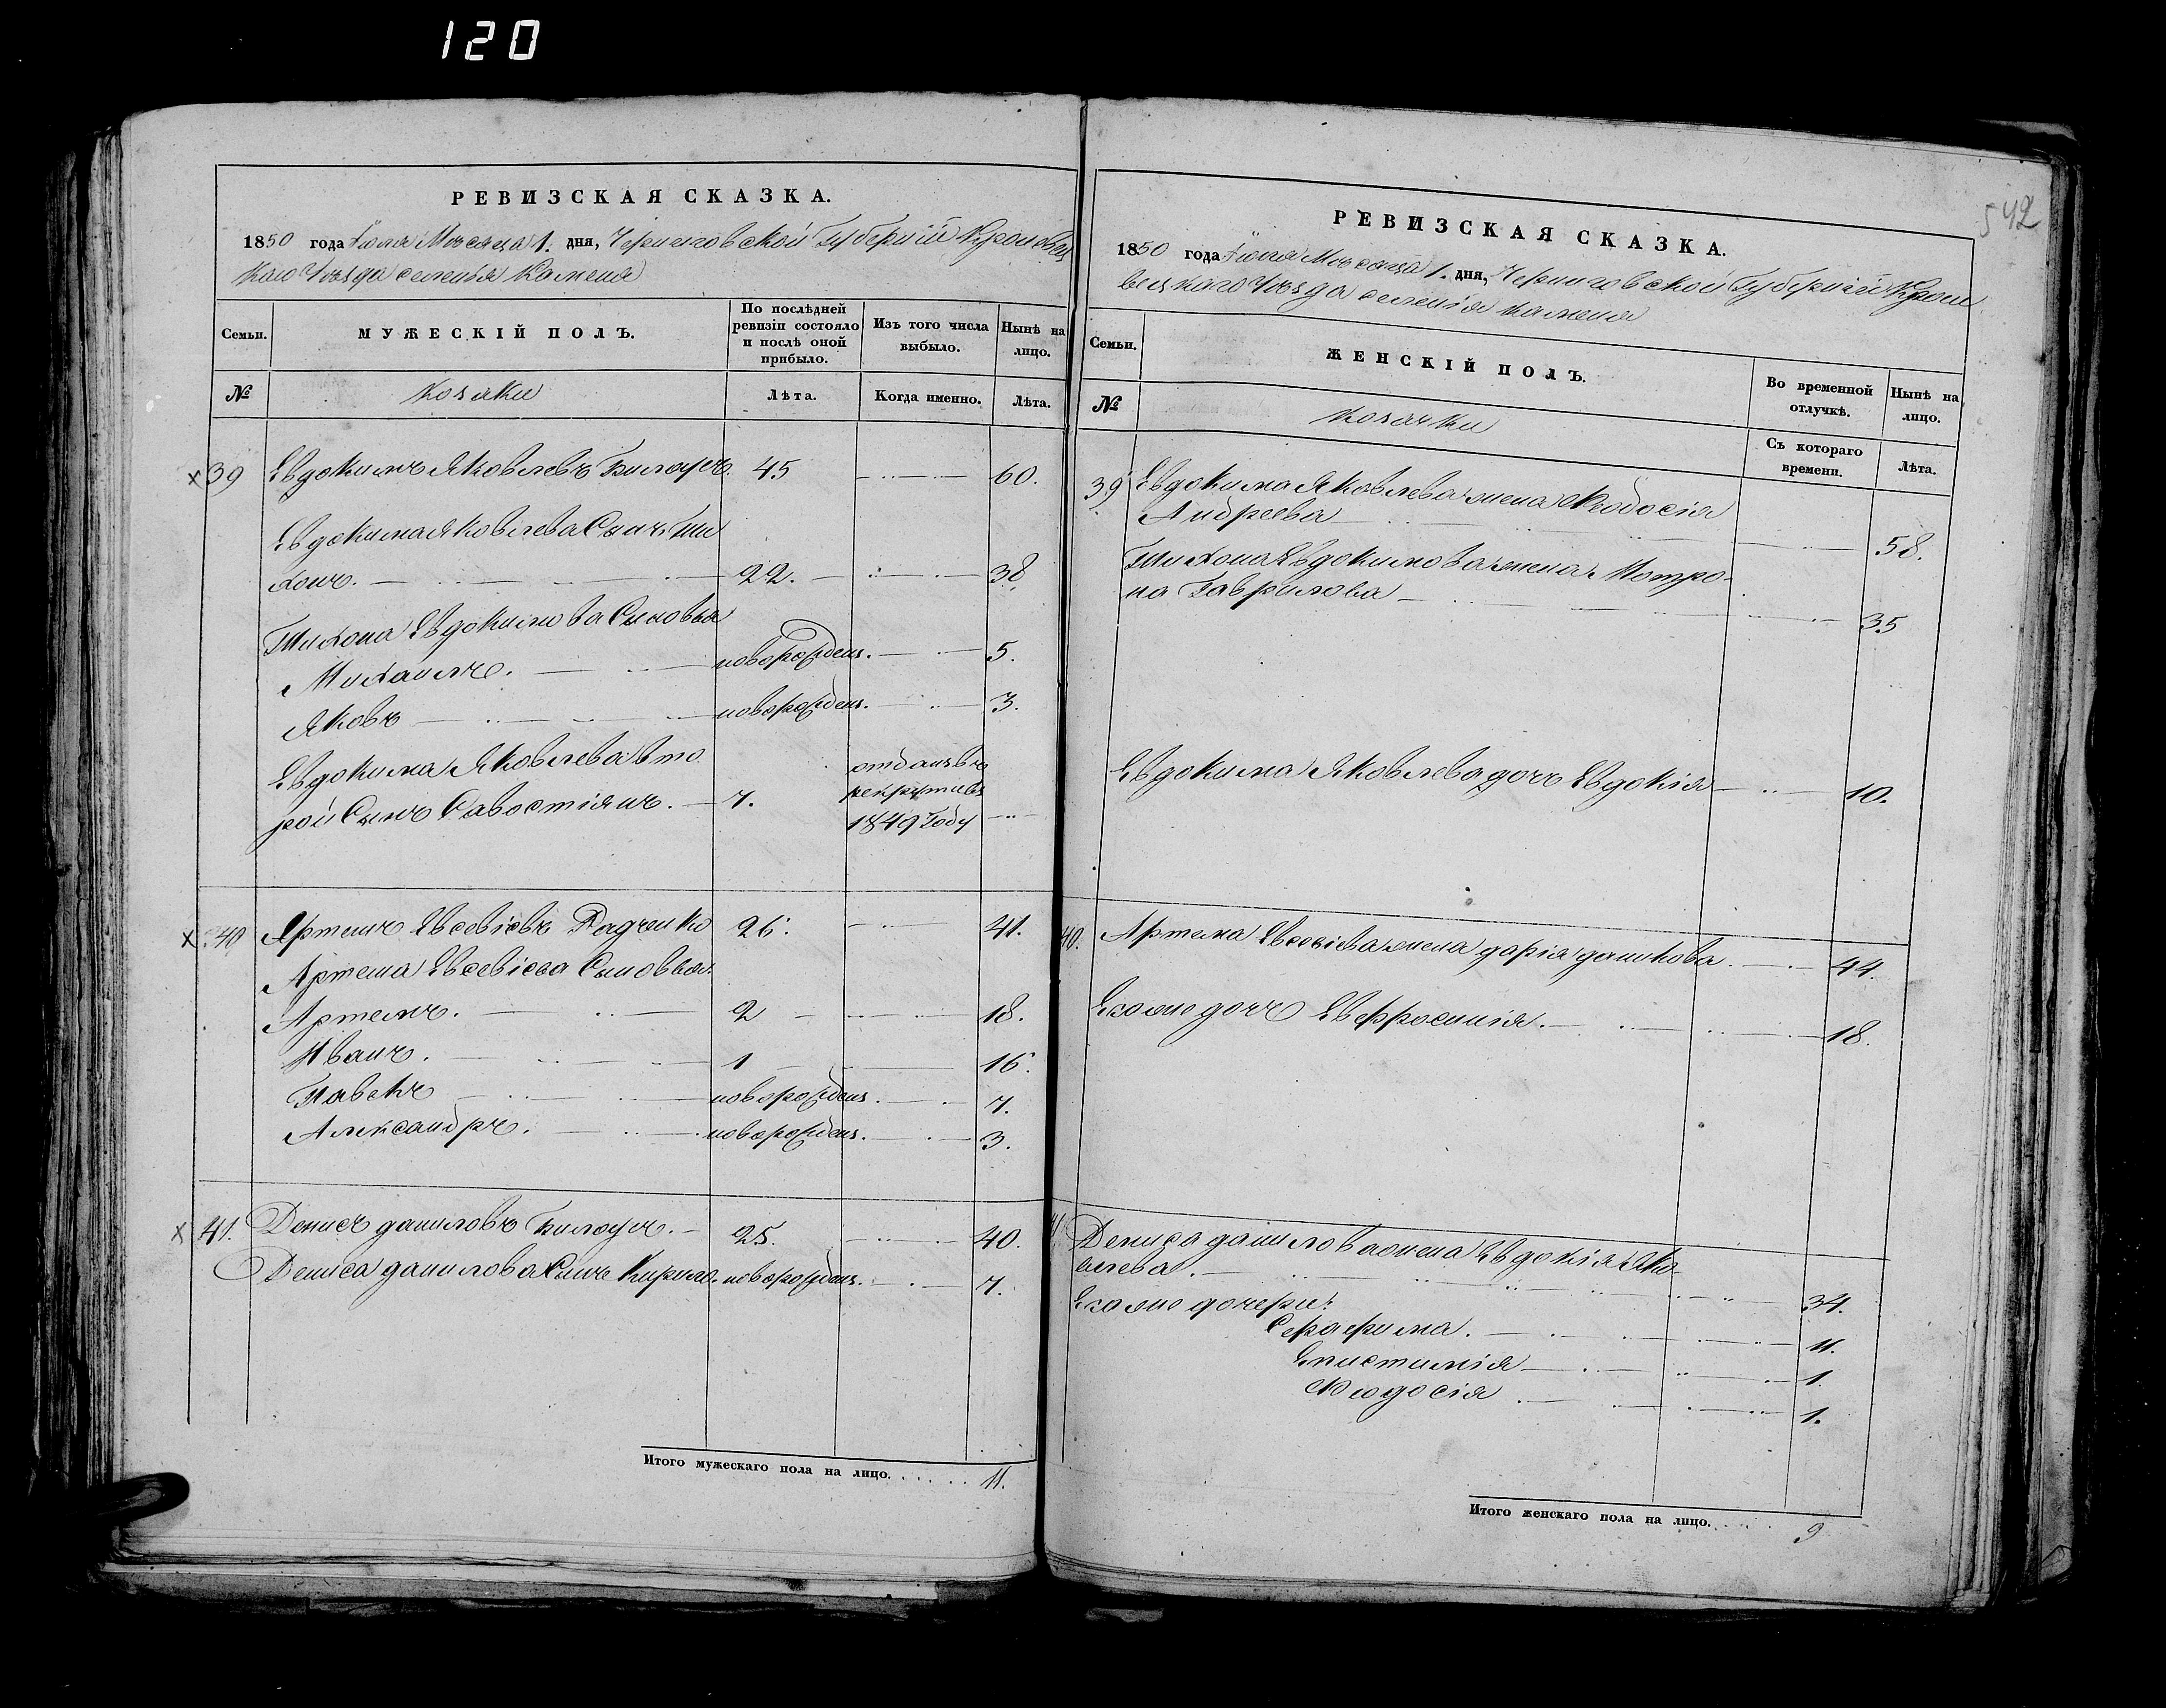 120
РЕВИЗСКАЯ СКАЗКА.
1850 года Іюля Мѣсяца 1. дня, Черниговской Губерніи Кролевец
каго Уѣзда селенія Каменя
Семьи.
МУЖЕСКІЙ ПОЛЪ.
По послѣдней
ревизіи состояло
и послѣ оной
прибыло.
Изъ того числа
выбыло.
Нынѣ на
лицо.
№
козаки
Лѣта.
Когда именно.
Лѣта.
х 39 Евдокимъ Яковлевъ Билоусъ. 45 60.
Евдокима Яковлева Сынъ Ти
хонъ. 22. 38.
Тихона Евдокимова Сыновья
Михаилъ. новорожден. 5.
Яковъ новорожден. 3.
Евдокима Яковлева вто
рой Сынъ Савостіянъ. 7. отданъ въ
рекруты въ
1849 Году
х 40 Артемъ Евсевіевъ Радченко 26. 41.
Артема Евсевіева Сыновья
Артемъ. 2 18.
Иванъ. 1 16.
Павелъ новорожден. 7.
Александръ. новорожден. 3.
х 41. Денисъ даниловъ Билоусъ. 25. 40.
Дениса данилова Сынъ Кирило. новорожден. 7.
Итого мужескаго пола на лицо. 11.
542
РЕВИЗСКАЯ СКАЗКА.
1850 года Іюля Мѣсяца 1. дня, Черниговской Губерніи Кроле
вецкаго Уѣзда селенія Каменя
Семьи.
ЖЕНСКІЙ ПОЛЪ.
Во временной
отлучкѣ.
Нынѣ на
лицо.
№
козачки
Съ котораго
времени.
Лѣта.
39 Евдокима Яковлева жена Феодосія
Андреева 58.
Тихона Евдокимова жена Мотро-
на Гаврилова 35
Евдокима Яковлева дочь Евдокія 10.
40. Артема Евсевіева жена дарія данилова. 44.
Егоже дочь Евфросинія. 18.
41 Дениса данилова жена Евдокія Яко-
влева. 34.
Егоже дочери:
Серафима. 11.
Епистимія 1.
Феодосія 1.
Итого женскаго пола на лицо. 9